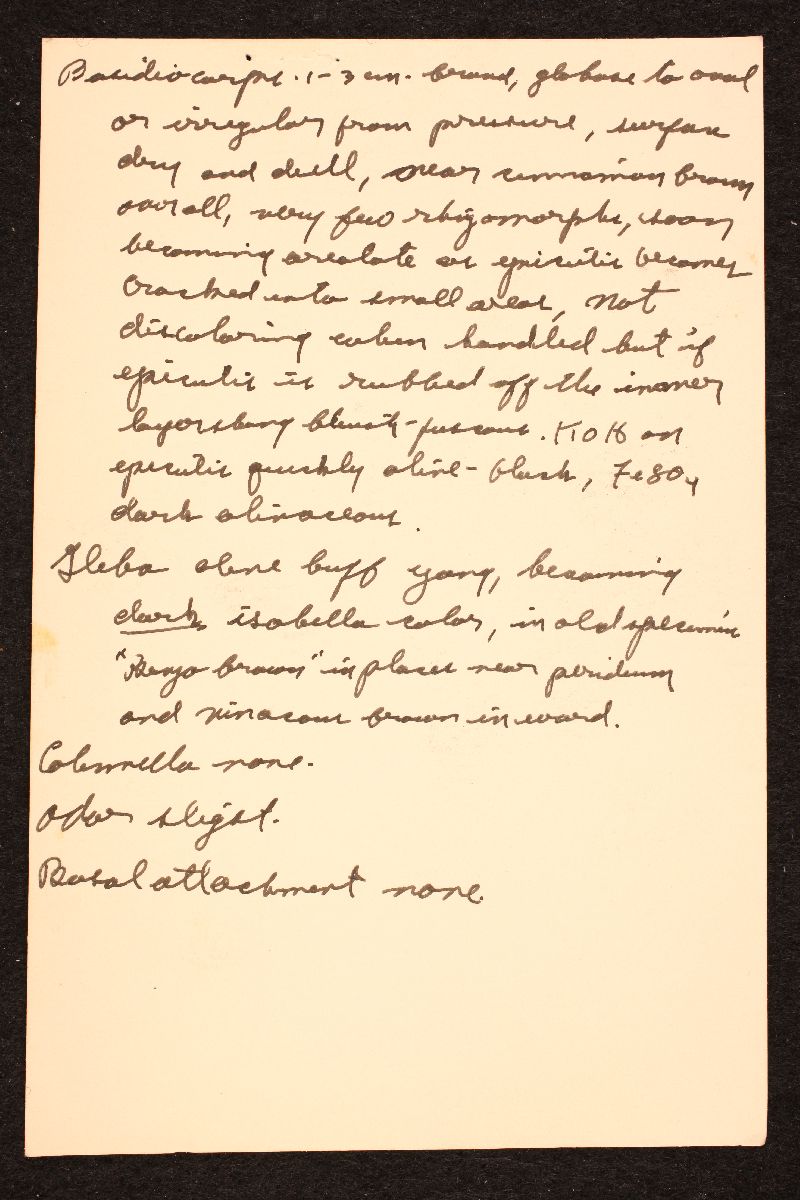 Basidiocarps .1-3 cm. broad, globose to oval
or irregular from pressure, surface
dry and dull, near cinnamon brown
overall, very few rhizomorphs, soon
becoming areolate as epicutis becomes
cracked into small areas, not
discoloring when handled but if
epicutis is rubbed off the inner
layer stains bluish-fuscous. KOH on
epicutis quickly olive-black, FeSO4
dark olivaceous.
Gleba olive buff young, becoming
dark isabella color, in old specimens
"Benzo brown" in places near peridium
and vinaceous brown inward.
Columella none.
Odor slight.
Basal attachment none.